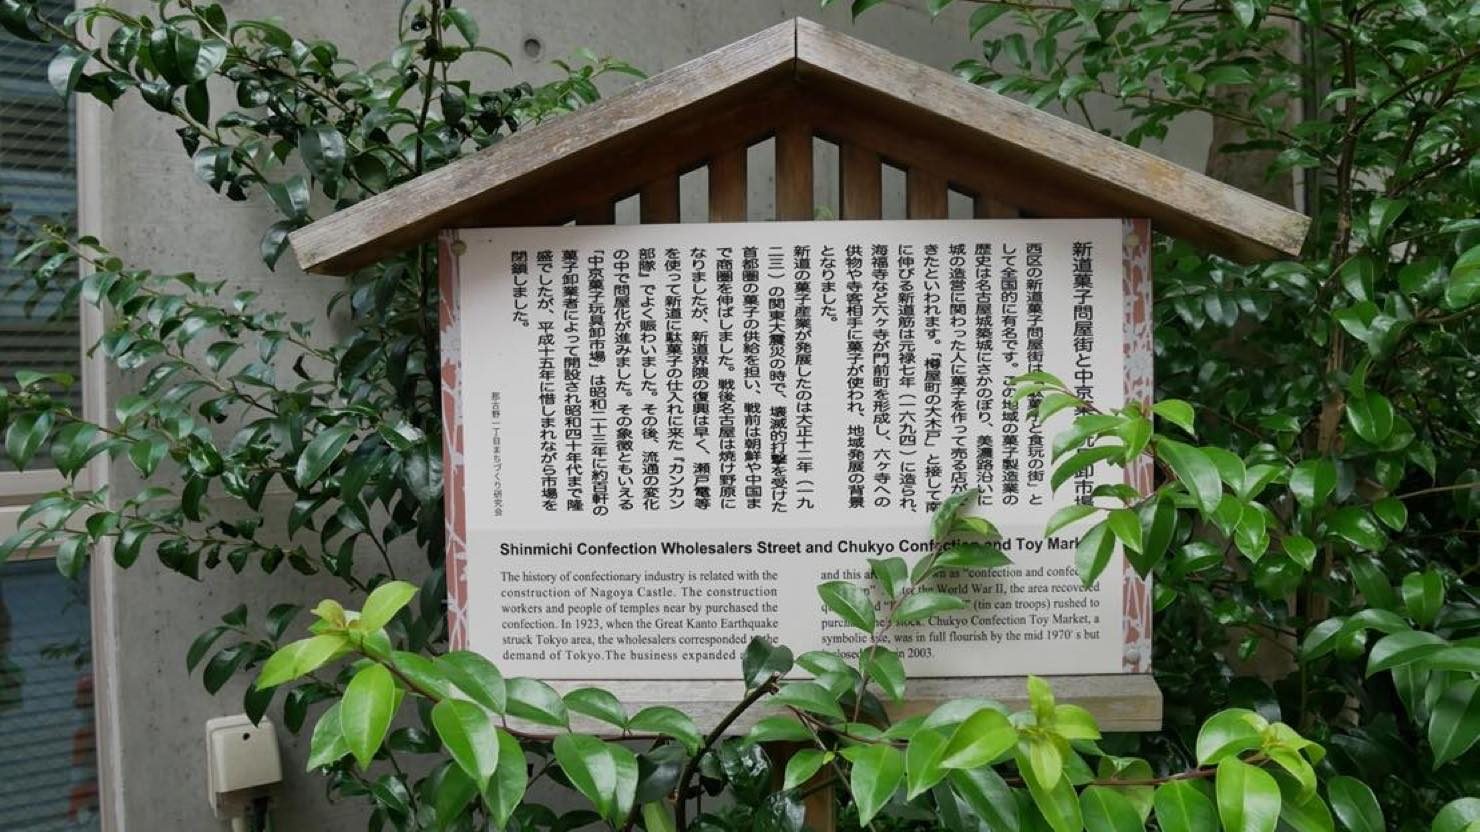 新道菓子問屋街と中京菓子玩具卸市場
西区の新道菓子問屋街は「駄菓子と食玩の街」と
して全国的に有名です。この地域の菓子製造業の
歴史は名古屋城築城にさかのぼり、美濃路沿いに
城の造営に関わった人に菓子を作って売る店が
きたといわれます。「樽屋町の大木戸」と接して南
に伸びる新道筋は元禄七年(一六九四)に造られ、
海福寺など六ヶ寺が門前町を形成し、六ヶ寺への
供物や寺客相手に菓子が使われ、地域発展の背景
となりました。
新道の菓子産業が発展したのは大正十二年(一九
二三)の関東大震災の時で、壊滅的打撃を受けた
首都圏の菓子の供給を担い、戦前は朝鮮や中国ま
で商圏を伸ばしました。戦後名古屋は焼け野原に
なりましたが、新道界隈の復興は早く、瀬戸電等
を使って新道に駄菓子の仕入れに来た「カンカン
部隊」でよく賑わいました。その後、流通の変化
の中で問屋化が進みました。その象徴ともいえる
「中京菓子玩具卸市場」は昭和二十三年に約百軒の
菓子卸業者によって開設され昭和四十年代まで隆
盛でしたが、平成十五年に惜しまれながら市場を
閉鎖しました。
那古野一丁目まちづくり研究会
Shinmichi Confection Wholesalers Street and Chukyo Confection and Toy
The history of confectionary industry is related with the
construction of Nagoya Castle. The construction
workers and people of temples near by purchased the
confection. In 1923, when the Great Kanto Earthquake
struck Tokyo area, the wholesalers corresponded the
demand of Tokyo.The business expanded
and this as "confection and
the World War II, the area recovered
(tin can troops) rushed to
stock. Chukyo Confection Toy Market, a
symbolic was in full flourish by the mid 1970's but
in 2003.